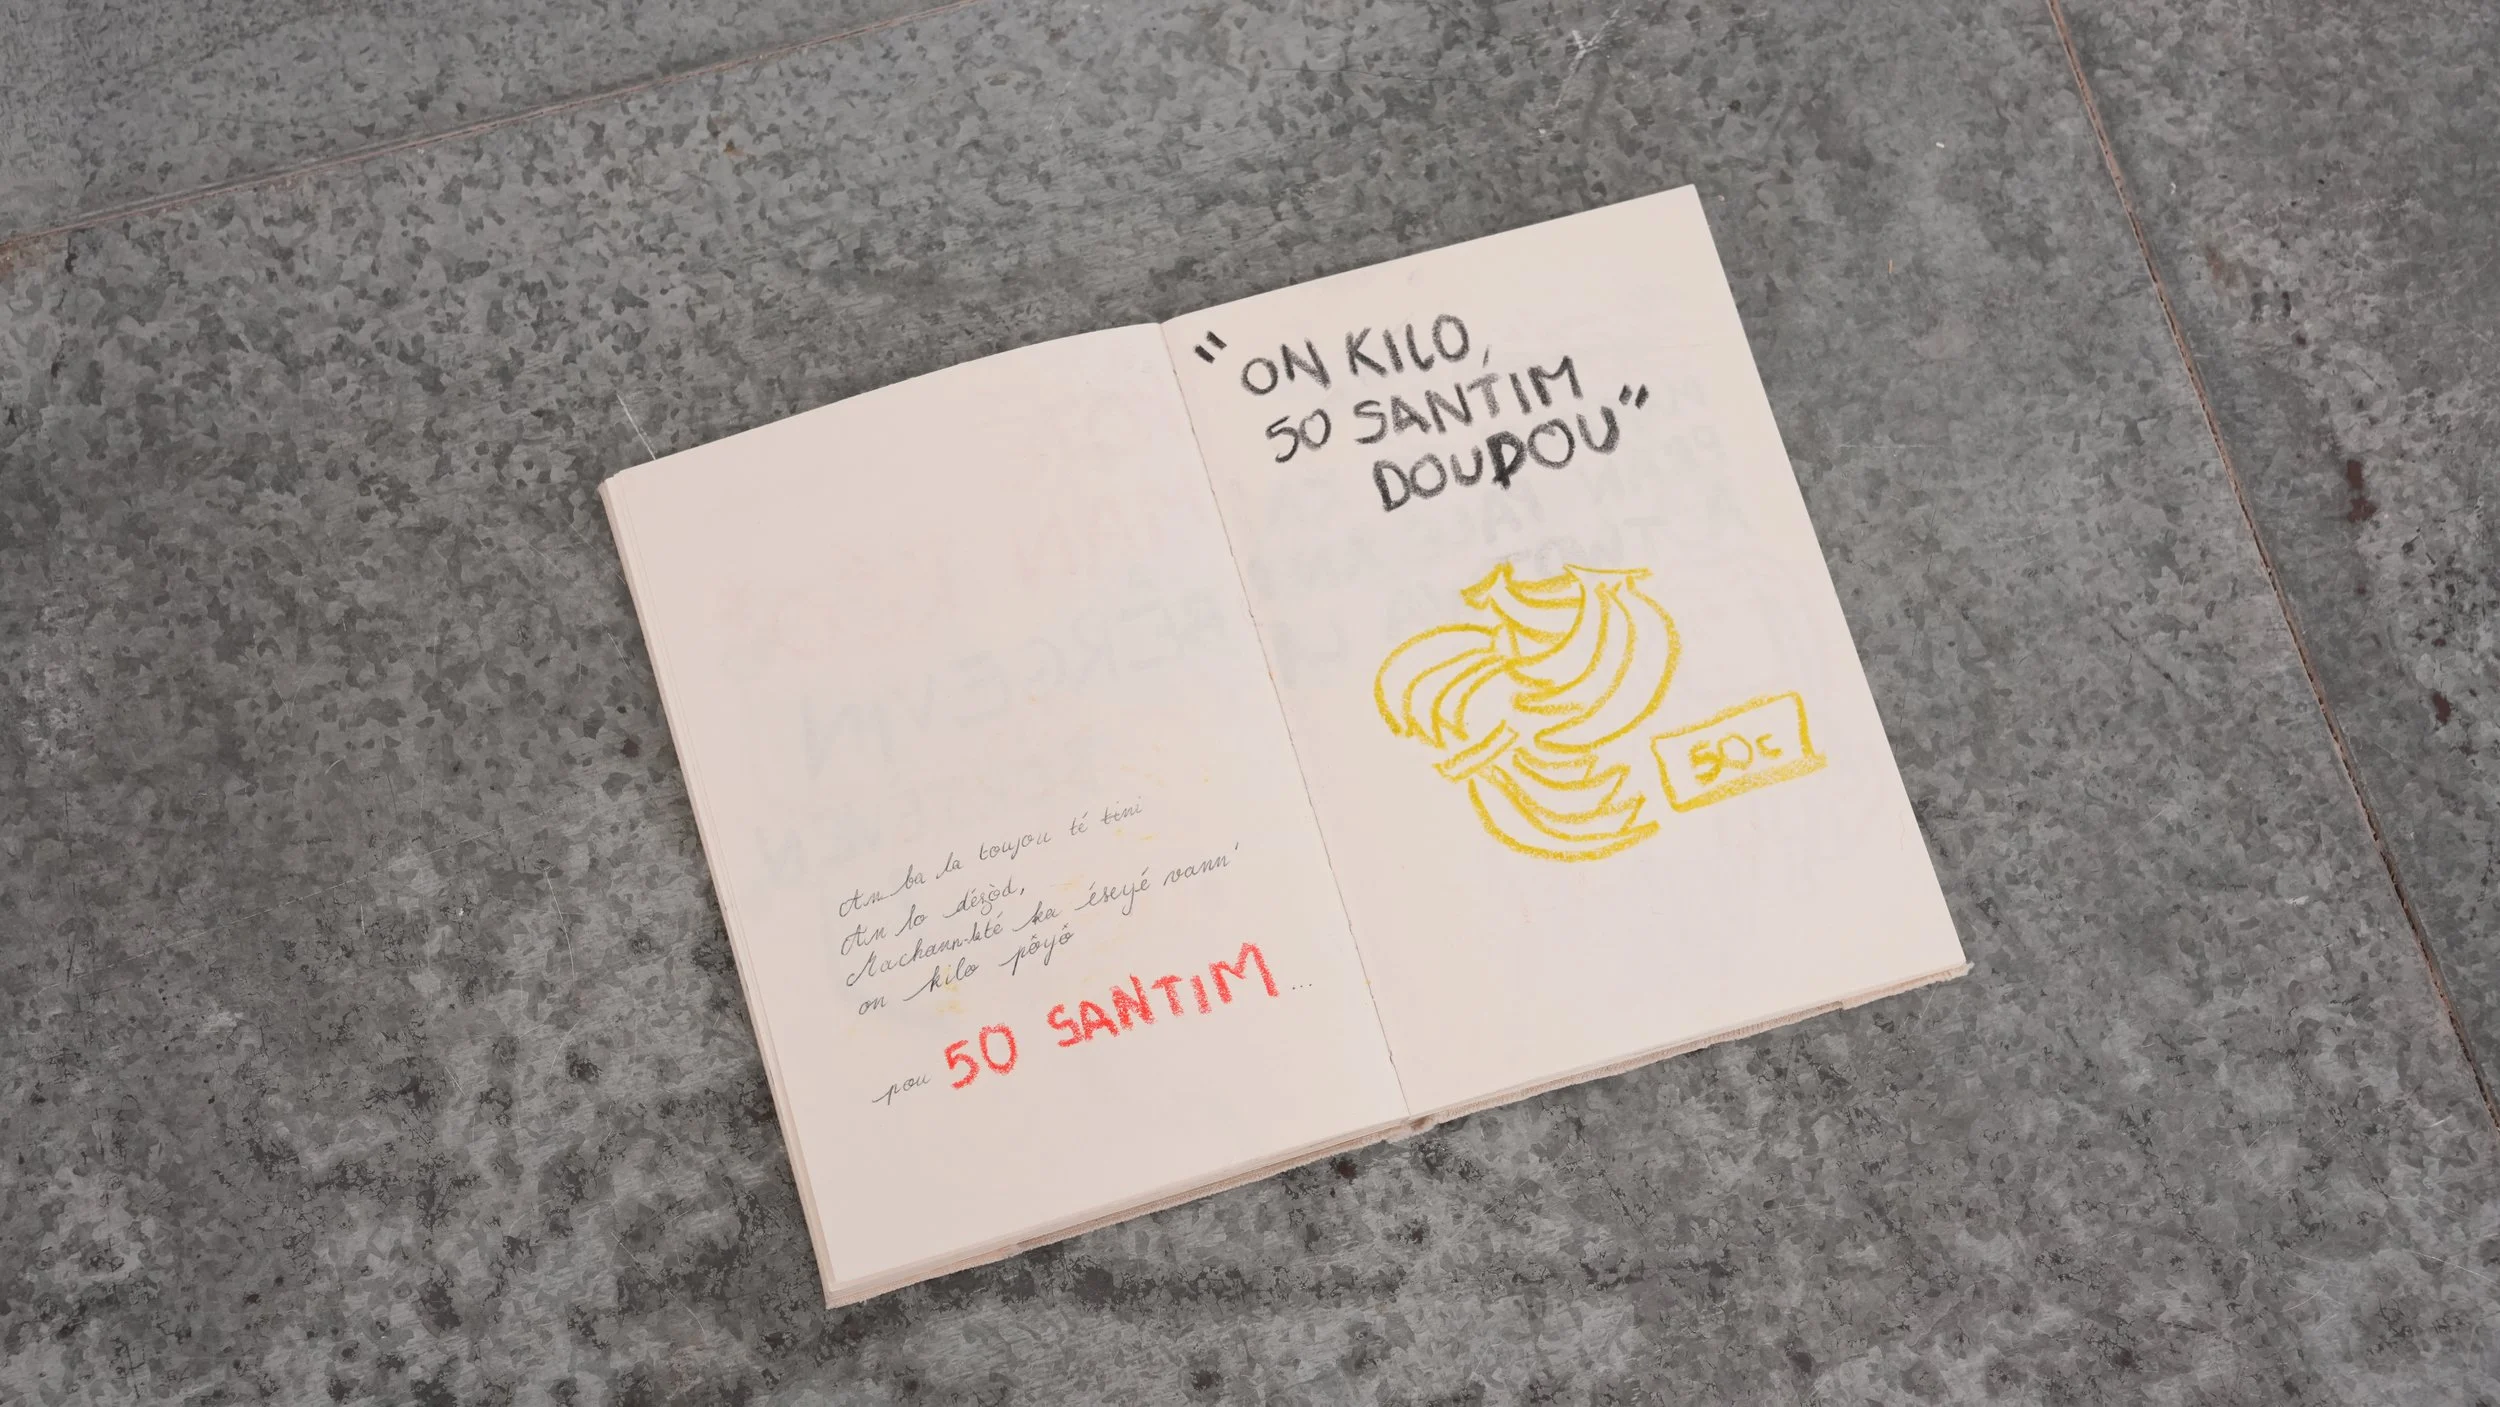 An ba la toujou té tini
An lo dézòd,
Machann-lété ka éseyé vann'
on kilo pôyô
pou 50 SANTIM...
"ON KILO,
50 SANTIM
DOUDOU"
50c